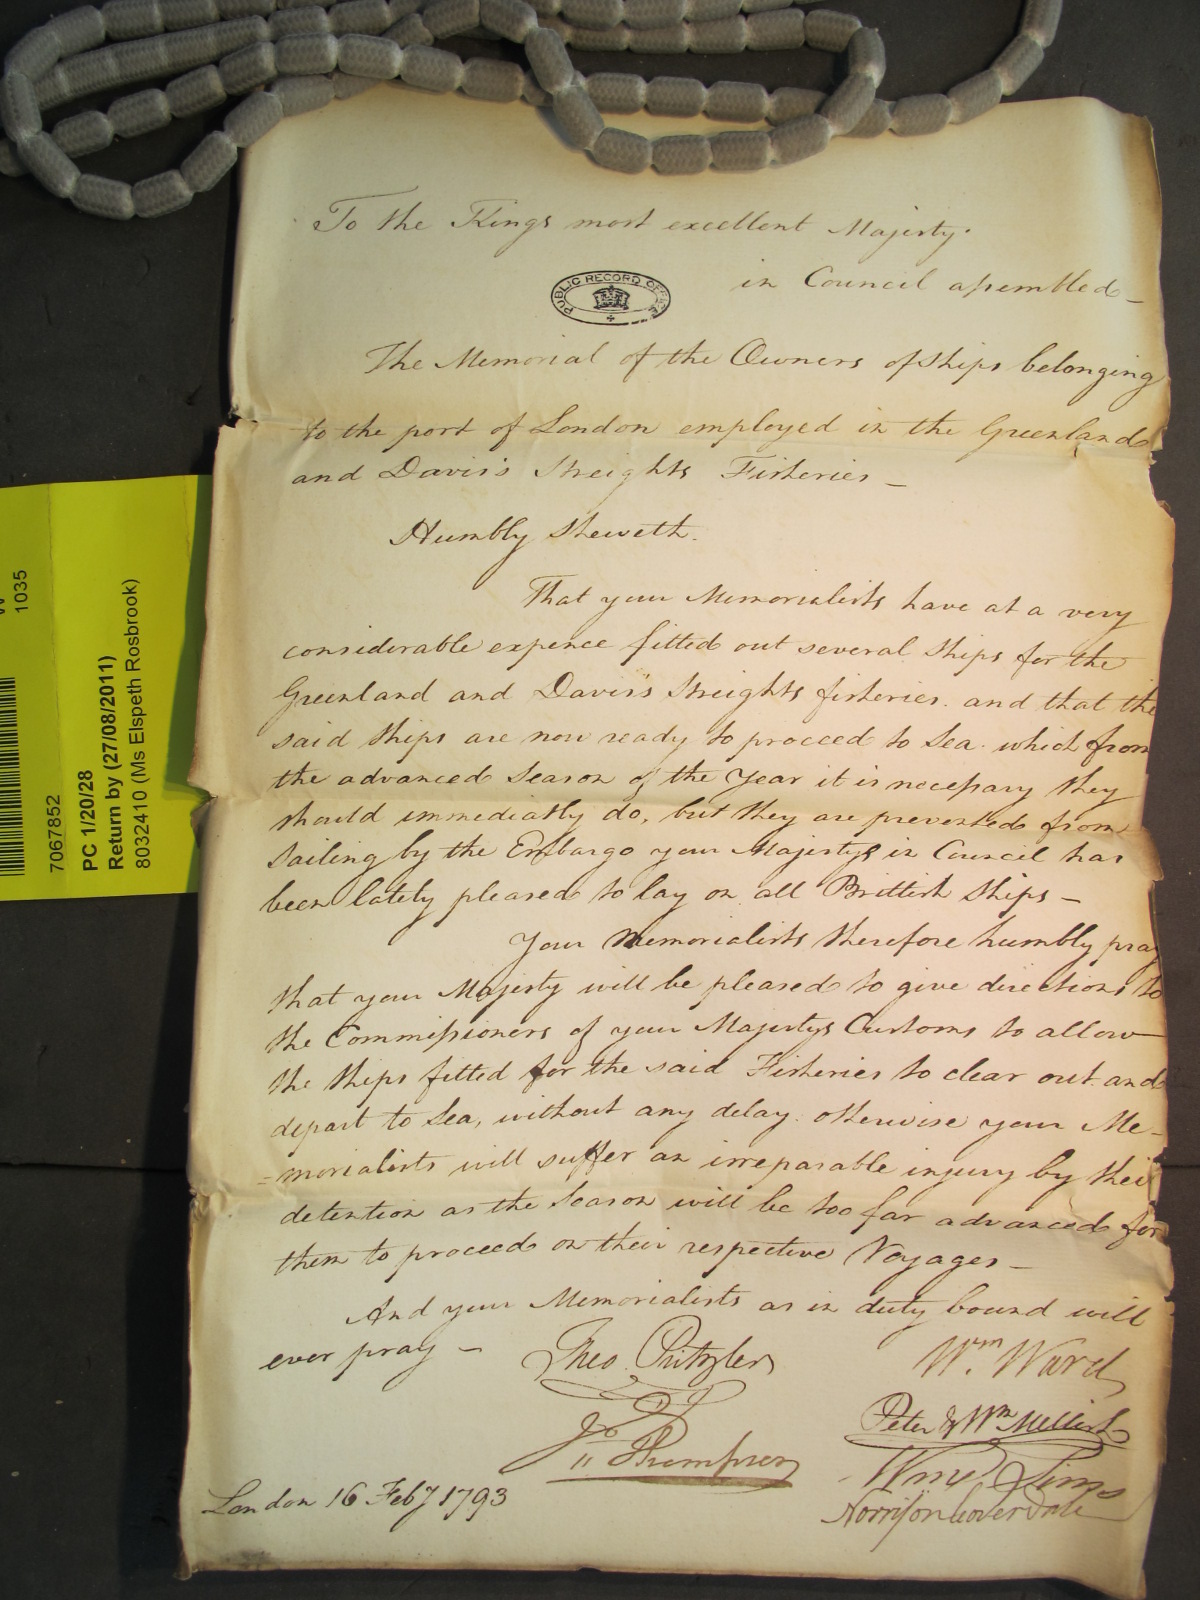 To the Kings most excellent Majesty.
in Council assembled -
PUBLIC RECORD OFFICE
The Memorial of the Owners of Ships belonging
to the port of London employed in the Greenland
and Davis's Streights Fisheries -
Humbly Sheweth.
That your Memorialists have at a very
considerable expence fitted out several Ships for the
Greenland and Davis's Streights fisheries. and that the
said Ships are now ready to proceed to Sea. which from
the advanced Season of the Year it is necessary they
should immediatly do, but they are prevented from
Sailing by the Embargo your Majesty in Council has
been lately pleased to lay on all Brittish Ships -
Your Memorialists therefore humbly pray
that your Majesty will be pleased to give directions to
the Commissioners of your Majestys Customs to allow
the Ships fitted for the said Fisheries to clear out and
depart to Sea, without any delay. otherwise your Me-
=morialists will suffer an irreparable injury by their
detention as the Season will be too far advanced for
them to proceed on their respective Voyages -
And your Memorialists as in duty bound will
ever pray -
Theo. Pritzler
Wm. Ward
Peter & Wm Mellish
Thompson
Sims
London 16 Feby 1793
Norrison Coverdale
1035
7067852
PC 1/20/28
Return by (27/08/2011)
8032410 (Ms Elspeth Rosbrook)